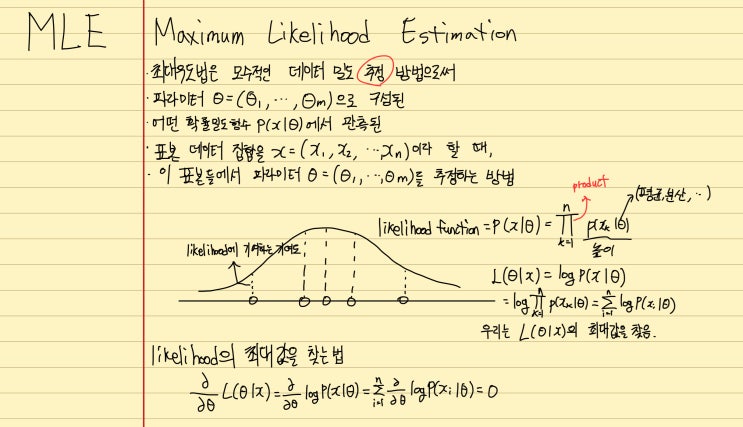 MLE
Maximum Likelihood Estimation
· 최대우도법은 모수적인 데이터 밀도 추정 방법으로써
· 파라미터 θ=(θ1, ···, θm)으로 구성된
· 어떤 확률밀도함수 P(x|θ)에서 관측된
· 표본 데이터 집합을 x=(x1, x2, ···, xn)이라 할 때,
· 이 표본들에서 파라미터 θ=(θ1, ···, θm)를 추정하는 방법
product
(평균, 분산, ··)
likelihood function = P(x|θ) = ∏_{k=1}^{n} P(xk|θ)
높이
likelihood에 기여하는 기여도
L(θ|x) = log P(x|θ)
= log ∏_{k=1}^{n} P(xk|θ) = Σ_{i=1}^{n} log P(xi|θ)
우리는 L(θ|x)의 최대값을 찾음.
likelihood의 최대값을 찾는법
∂/∂θ L(θ|x) = ∂/∂θ log P(x|θ) = Σ_{i=1}^{n} ∂/∂θ log P(xi|θ) = 0